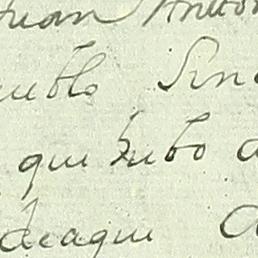 Juan Anton
ueblo Sin
que hubo a
deaqui